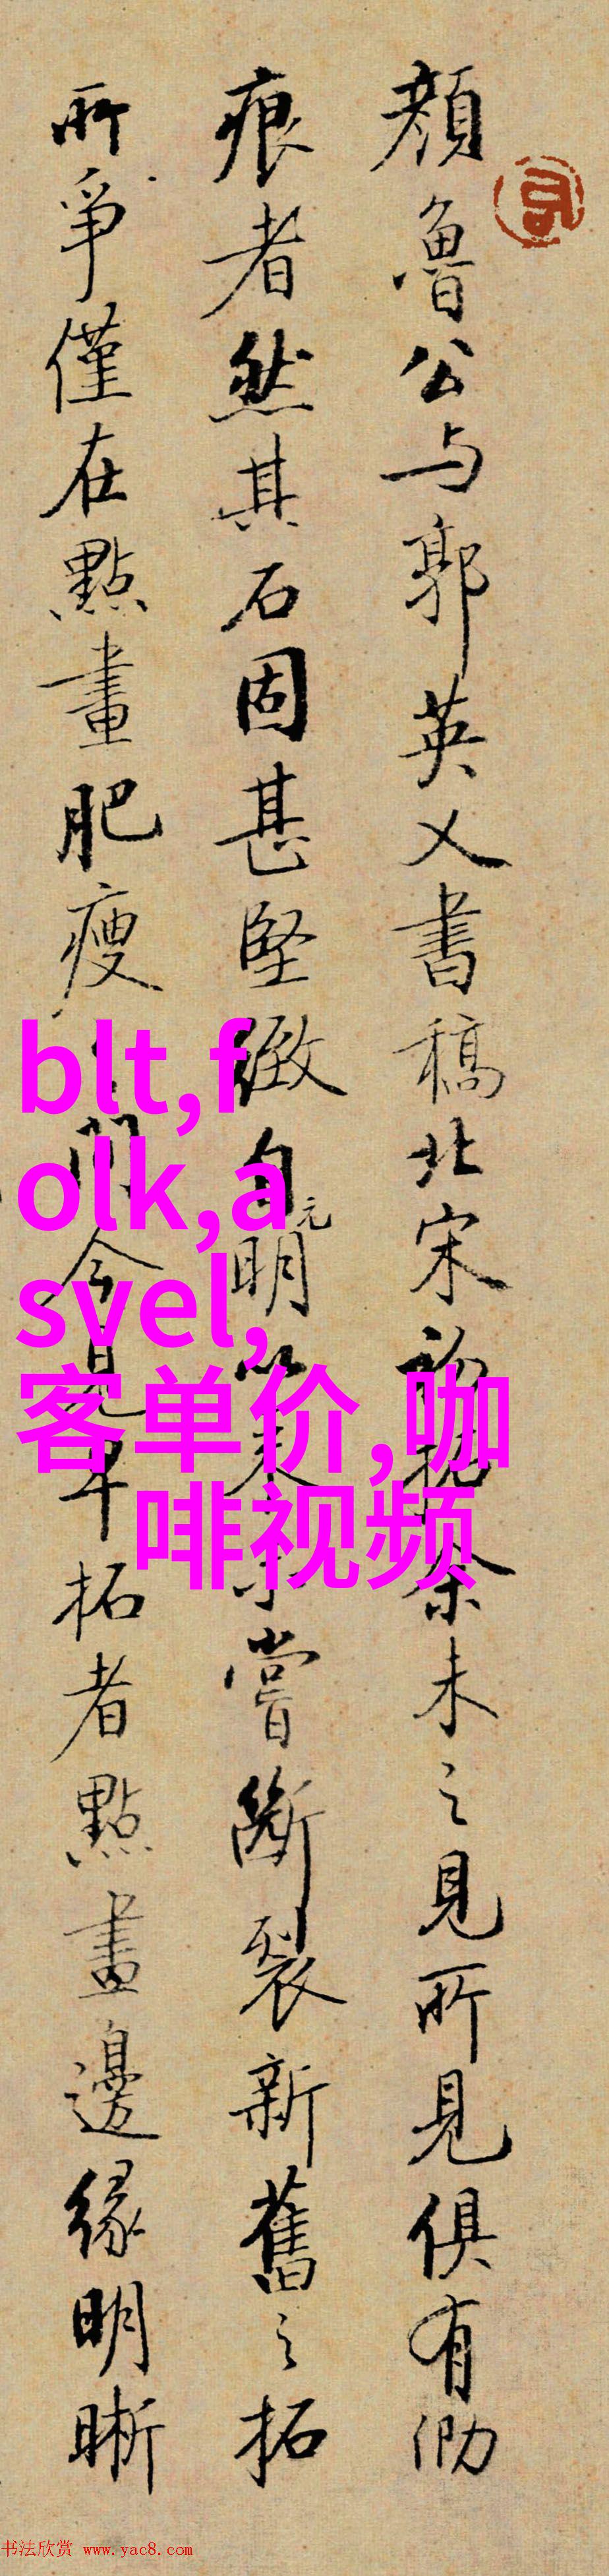 顔魯公与郭英乂書稿北宋初拓余未之見所見俱有泐
痕者然其石固甚堅緻自明以来未嘗斷裂新舊之拓
元
所爭僅在點畫肥瘦之間今見早拓者點畫邊緣明晰
blt,f
olk,a
svel,
客单价,咖
啡视频
书法欣赏 www.yac8.com